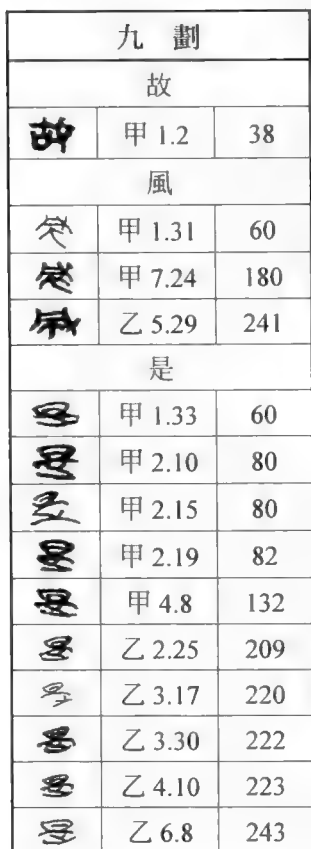 九 劃
故
甲 1.2 38
風
甲 1.31 60
甲 7.24 180
乙 5.29 241
是
甲 1.33 60
甲 2.10 80
甲 2.15 80
甲 2.19 82
甲 4.8 132
乙 2.25 209
乙 3.17 220
乙 3.30 222
乙 4.10 223
乙 6.8 243